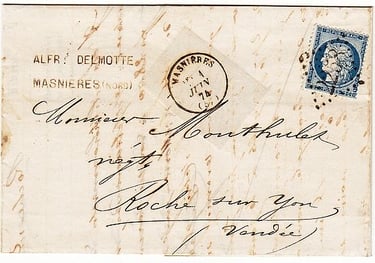 ALFR. DELMOTTE
MASNIÈRES (NORD)
MASNIÈRES
1
JUIN
74
REPUB FRANC
Monsieur Monthulet
négt
Roche sur Yon
(Vendée)